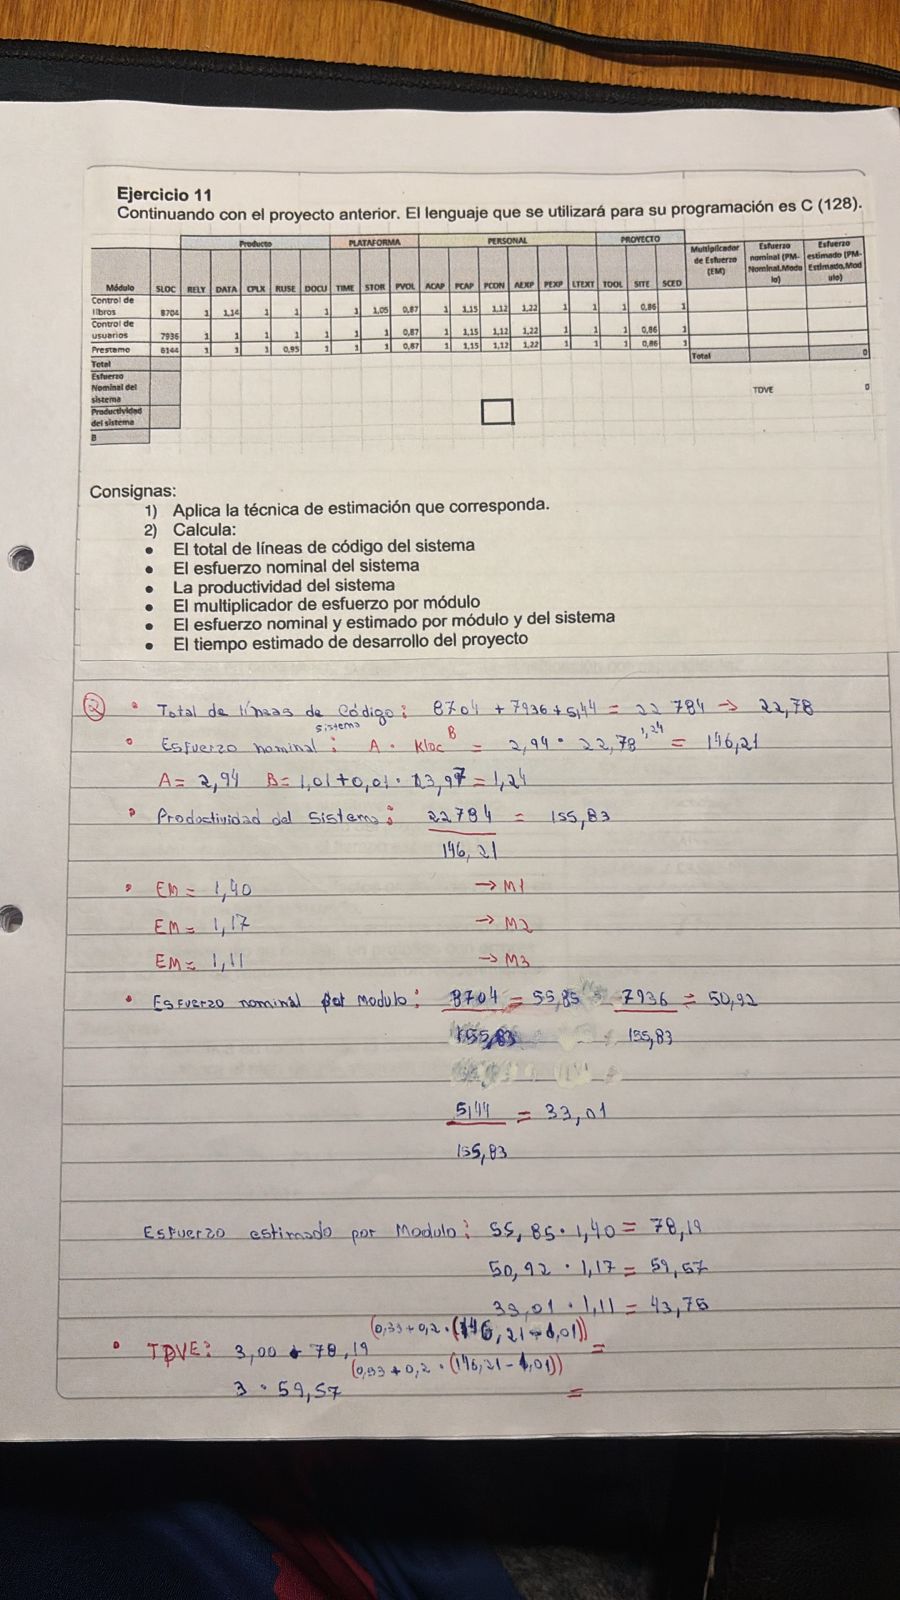 Ejercicio 11
Continuando con el proyecto anterior. El lenguaje que se utilizará para su programación es C (128).
Producto PLATAFORMA PERSONAL PROYECTO
Módulo SLOC RELY DATA CPLX RUSE DOCU TIME STOR PVOL ACAP PCAP PCON AEXP PEXP LTEXT TOOL SITE SCED Multiplicador de Esfuerzo (EM) Esfuerzo nominal (PM-Nominal,Modulo) Esfuerzo estimado (PM-Estimado,Modulo)
Control de libros 8704 1 1,14 1 1 1 1 1,05 0,87 1 1,15 1,12 1,22 1 1 1 0,86 1
Control de usuarios 7936 1 1 1 1 1 1 1 0,87 1 1,15 1,12 1,22 1 1 1 0,86 1
Prestamo 6144 1 1 1 0,95 1 1 1 0,87 1 1,15 1,12 1,22 1 1 1 0,86 1
Total 0
Total
Esfuerzo Nominal del sistema
TDVE 0
Productividad del sistema
B
Consignas:
1) Aplica la técnica de estimación que corresponda.
2) Calcula:
• El total de líneas de código del sistema
• El esfuerzo nominal del sistema
• La productividad del sistema
• El multiplicador de esfuerzo por módulo
• El esfuerzo nominal y estimado por módulo y del sistema
• El tiempo estimado de desarrollo del proyecto
② • Total de líneas de código: 8704 + 7936 + 5,144 = 22 784 → 22,78
• Esfuerzo nominal sistema: A · Kloc^B = 2,94 · 22,78^1,24 = 146,21
A = 2,94 B = 1,01 + 0,01 · 23,97 = 1,24
• Productividad del sistema: 22784 / 146,21 = 155,83
• EM = 1,40 → M1
EM = 1,17 → M2
EM = 1,11 → M3
• Esfuerzo nominal por modulo: 8704 / 155,83 = 55,85 7936 / 155,83 = 50,92
5,144 / 155,83 = 33,01
Esfuerzo estimado por Modulo: 55,85 · 1,40 = 78,19
50,92 · 1,17 = 59,57
33,01 · 1,11 = 43,75
• TDVE: 3,00 · 78,19 (0,33 + 0,2 · (146,21 - 1,01)) =
3 · 59,57 (0,33 + 0,2 · (146,21 - 1,01)) =